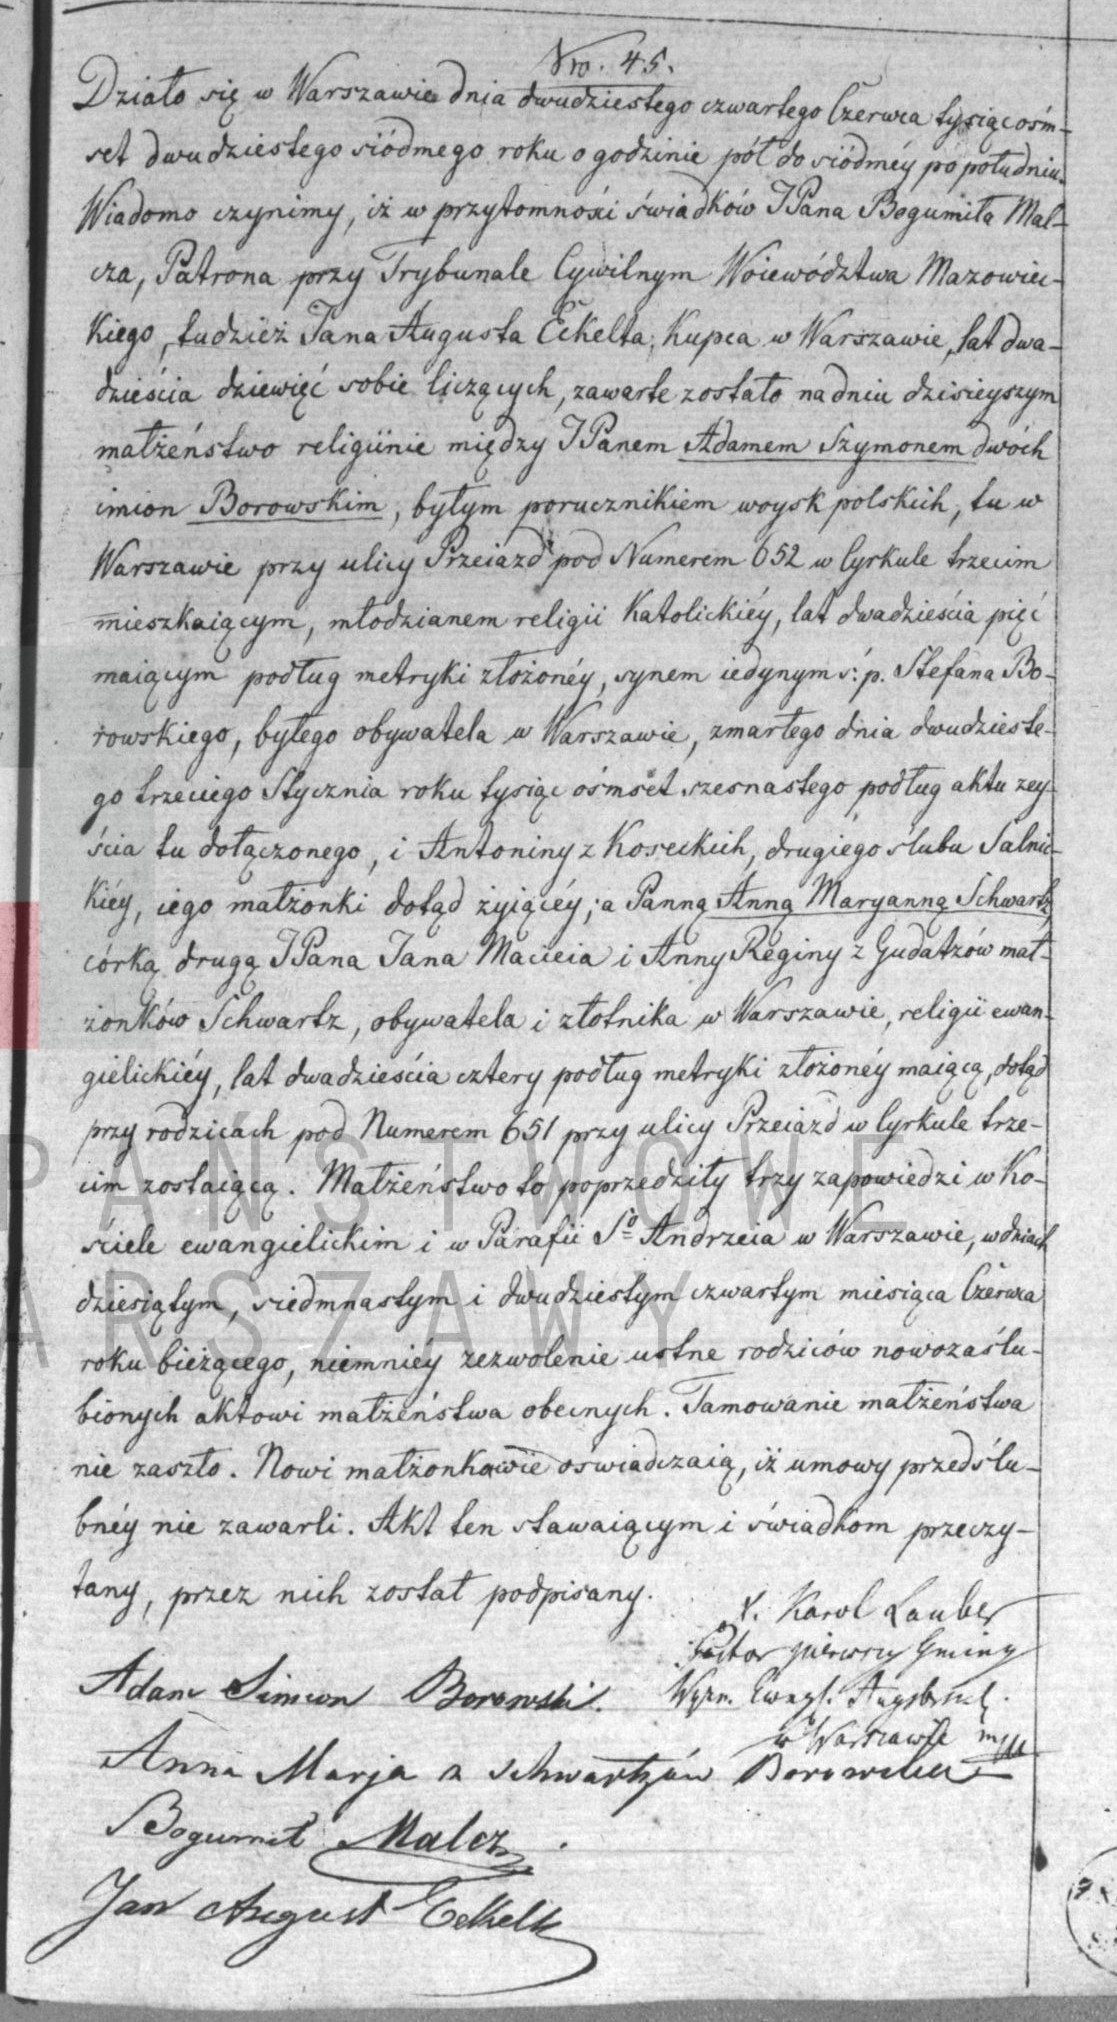 Nro. 45.
Działo się w Warszawie dnia dwudziestego czwartego Czerwca tysiąc ośm-
set dwudziestego siódmego roku o godzinie pół do siódméy po południu.
Wiadomo czynimy, iż w przytomności świadków JPana Bogumiła Mal-
cza, Patrona przy Trybunale Cywilnym Woiewództwa Mazowiec-
kiego, tudzież Jana Augusta Eckelta, Kupca w Warszawie, lat dwa-
dzieścia dziewięć sobie liczących, zawarte zostało na dniu dzisieyszym
małżeństwo religiinie między JPanem Adamem Szymonem dwóch
imion Borowskim, byłym porucznikiem woysk polskich, tu w
Warszawie przy ulicy Przeiazd pod Numerem 652 w Cyrkule trzecim
mieszkaiącym, młodzianem religii Katolickiéy, lat dwadzieścia pięć
maiącym podług metryki złożonéy, synem iedynym ś: p. Stefana Bo-
rowskiego, byłego obywatela w Warszawie, zmarłego dnia dwudzieste-
go trzeciego Stycznia roku tysiąc ośmset szesnastego podług aktu zey-
ścia tu dołączonego, i Antoniny z Koseckich, drugiego ślubu Salnic-
kiéy, iego małżonki dotąd żyiącéy; a Panną Anną Maryanną Schwartz,
córką drugą JPana Jana Macieia i Anny Reginy z Gudatzów mał-
żonków Schwartz, obywatela i złotnika w Warszawie, religii ewan-
gielickiéy, lat dwadzieścia cztery podług metryki złożonéy maiącą, dotąd
przy rodzicach pod Numerem 651 przy ulicy Przeiazd w Cyrkule trze-
cim zostaiącą. Małżeństwo to poprzedziły trzy zapowiedzi w Ko-
ściele ewangielickim i w Parafii Sgo Andrzeia w Warszawie, w dniach
dziesiątym, siedmnastym i dwudziestym czwartym miesiąca Czerwca
roku bieżącego, niemniéy zezwolenie ustne rodziców nowozaślu-
bionych aktowi małżeństwa obecnych. Tamowanie małżeństwa
nie zaszło. Nowi małżonkowie oświadczaią, iż umowy przedślu-
bnéy nie zawarli. Akt ten stawaiącym i świadkom przeczy-
tany, przez nich został podpisany.
X. Karol Lauber
Pastor pierwszy Gminy
Wyzn. Ewngl. Augsbrsk.
w Warszawie mpp
Adam Simeon Borowski.
Anna Marja z Schwartzów Borowska
Bogumił Malcz.
Jan August Eckelt
PAŃSTWOWE
ARSZAWY